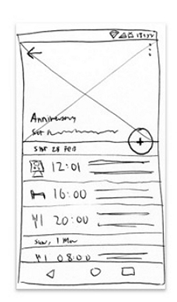 Anniversary
SAT 28 FEB
12:01
16:00
20:00
Sun, 1 Mar
08:00